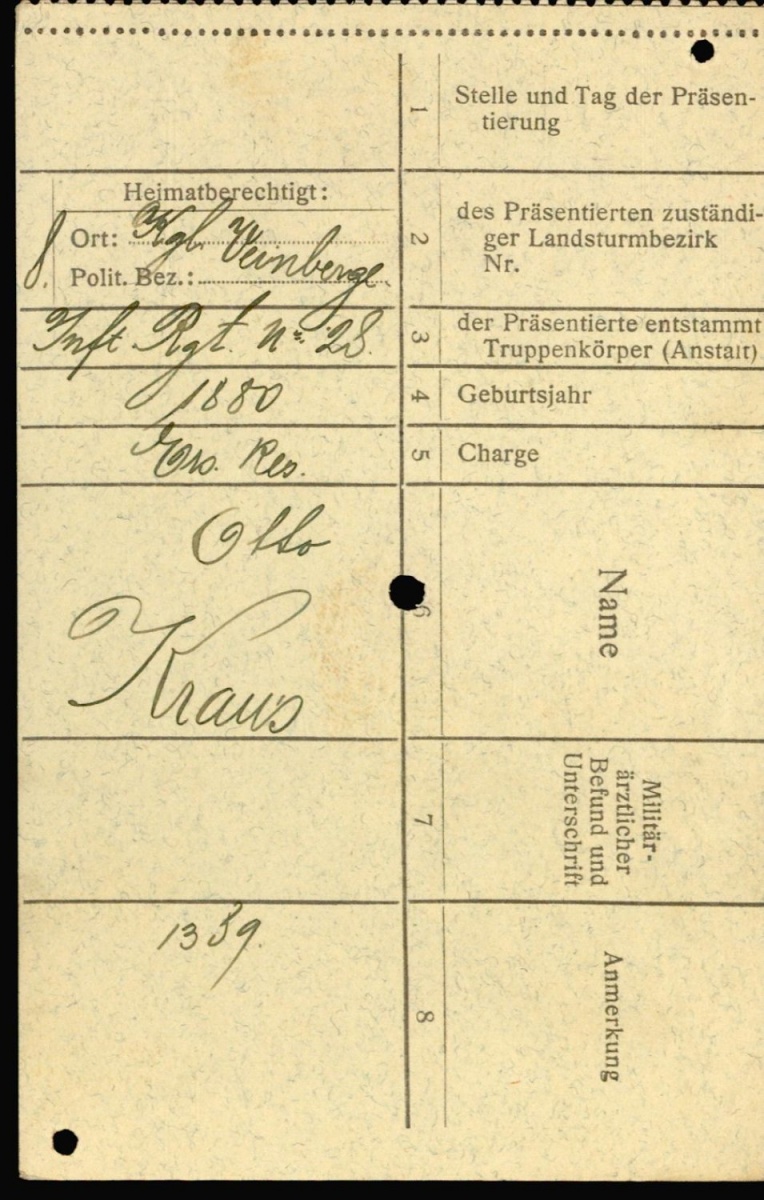 1
Stelle und Tag der Präsen-
tierung
Heimatberechtigt:
Ort: Kgl. Weinberge
Polit. Bez.:
8.
2
des Präsentierten zuständi-
ger Landsturmbezirk
Nr.
Inft Rgt. No. 28.
3
der Präsentierte entstammt
Truppenkörper (Anstalt)
1880
4
Geburtsjahr
Ers. Res.
5
Charge
Otto
Kraus
6
Name
7
Militär-
ärztlicher
Befund und
Unterschrift
1339.
8
Anmerkung